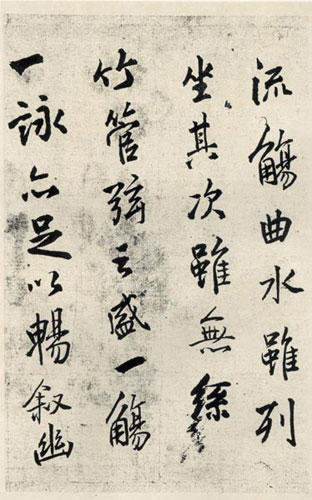 流觴曲水雖列
坐其次雖無絲
竹管弦之盛一觴
一詠亦足以暢叙幽